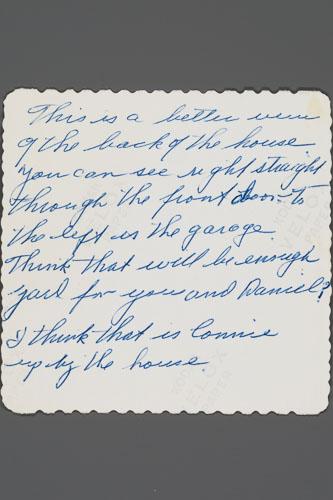 This is a better view
of the back of the house.
You can see right straight
through the front door. to
the left is the garage
Think that will be enough
yard for you and Daniel?
I think that is Connie
up by the house.
VELOX
VELOX